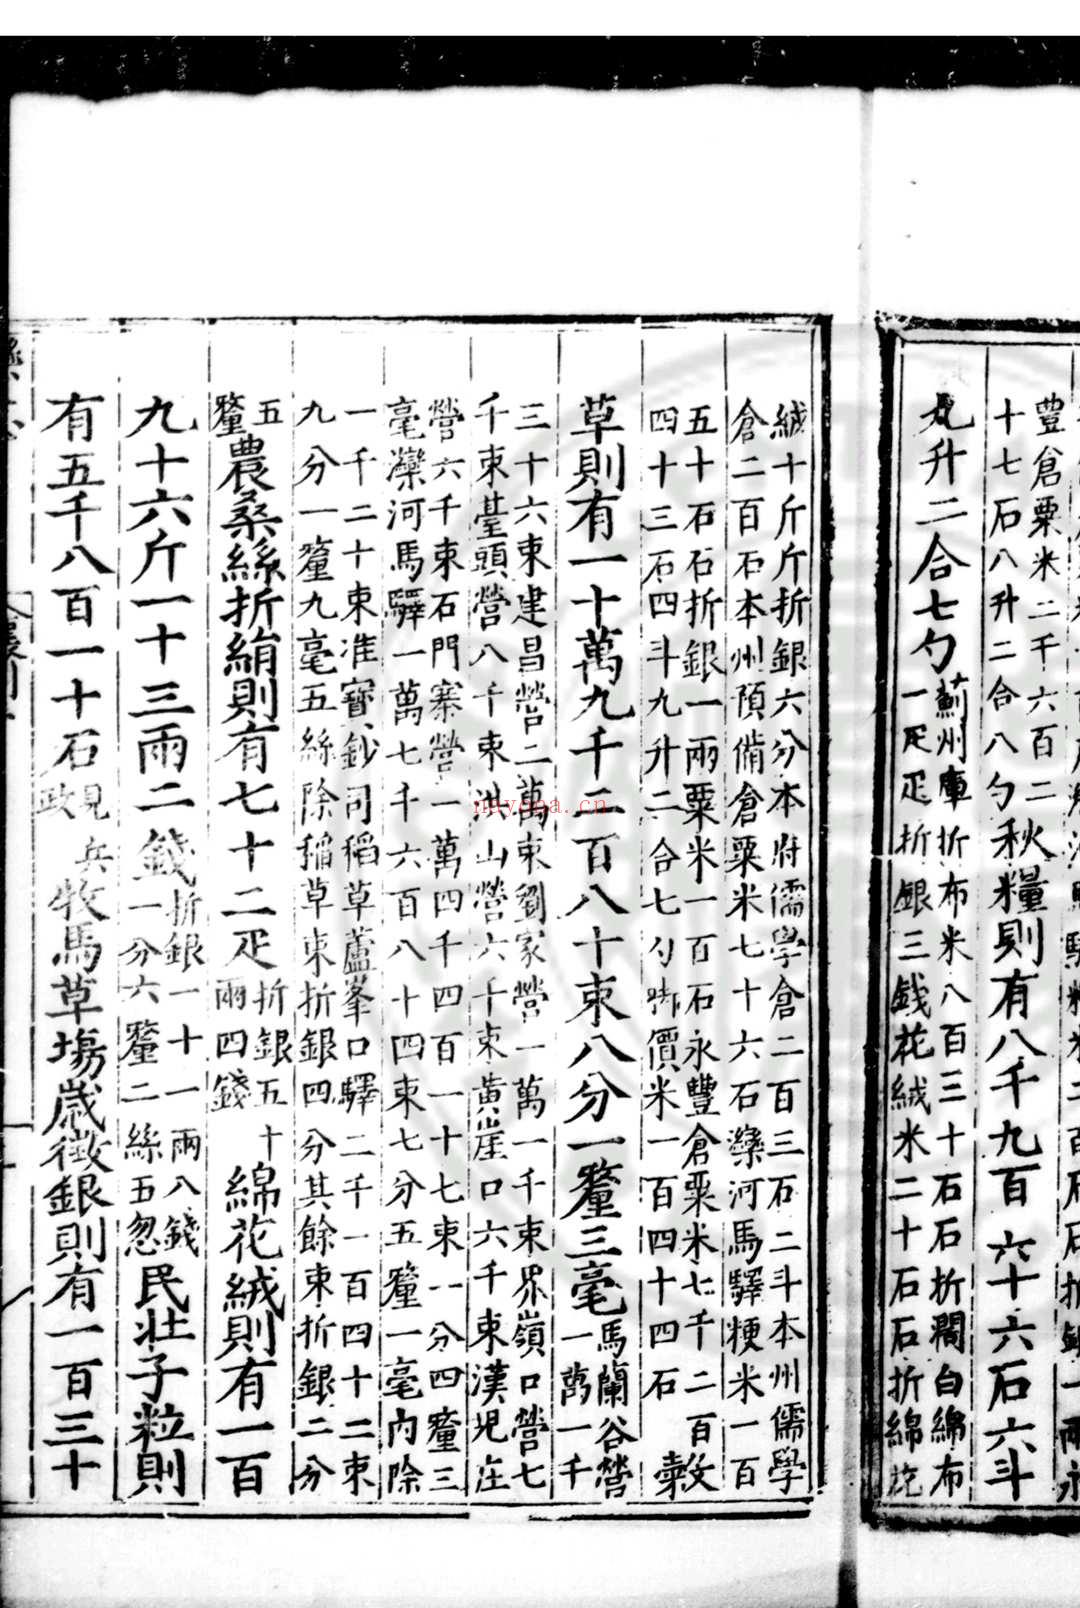 豊倉粟米二千六百二
十七石八升二合八勺秋糧則有八千九百六十六石六斗
九升二合七勺薊州庫折布米八百三十石石折濶白綿布
一疋疋折銀三錢花絨米二十石石折綿花
絨十斤斤折銀六分本府儒學倉二百三石二斗本州儒學
倉二百石本州預俻倉粟米七十六石灤河馬驛粳米一百
五十石石折銀一兩粟米一百石永豐倉粟米七千二百
四十三石四斗九升二合七勺脚價米一百四十四石
草則有一十萬九千二百八十束八分一釐三毫馬蘭谷營
一萬一千
三十六束建昌營二萬束劉家營一萬一千束界嶺口營七
千束臺頭營八千束洪山營六千束黄崖口六千束漢兒庄
營六千束石門寨營一萬四千四百一十七束一分四釐三
毫灤河馬驛一萬七千六百八十四束七分五釐一毫內除
一千二十束准寳鈔司稻草蘆峯口驛二千一百四十二束
九分一釐九毫五絲除稻草束折銀四分其餘束折銀二分
五
釐農桑絲折絹則有七十二疋折銀五十
兩四錢綿花絨則有一百
九十六斤一十三兩二錢折銀一十一兩八錢
一分六釐二絲五忽民壯子粒則
有五千八百一十石見兵
政牧馬草塲歲徵銀則有一百三十
nayona.cn